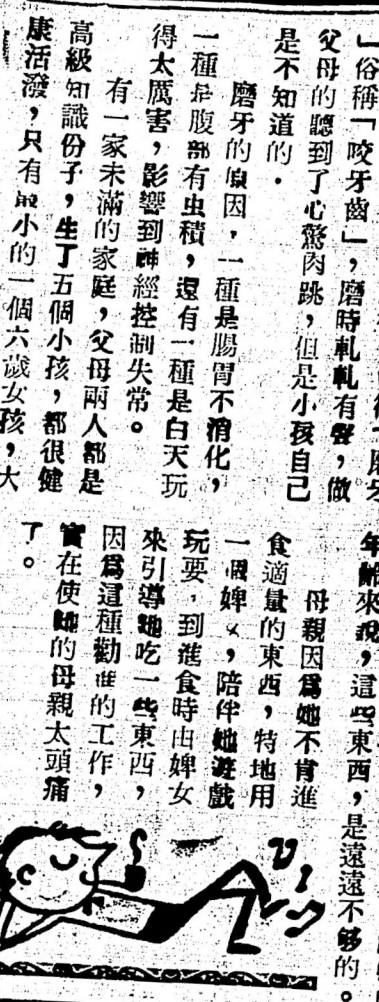 」俗稱「咬牙齒」，磨時軋軋有聲，做
父母的聽到了心驚肉跳，但是小孩自己
是不知道的．
磨牙的原因，一種是腸胃不消化，
一種是腹部有虫積，還有一種是白天玩
得太厲害，影響到神經控制失常。
有一家未滿的家庭，父母兩人都是
高級知識份子，生了五個小孩，都很健
康活潑，只有最小的一個六歲女孩，大
年齡來說，這些東西，是遠遠不够的。
母親因爲她不肯進
食適量的東西，特地用
一個婢女，陪伴她遊戲
玩耍，到進食時由婢女
來引導她吃一些東西，
因爲這種勸進的工作，
實在使她的母親太頭痛
了。